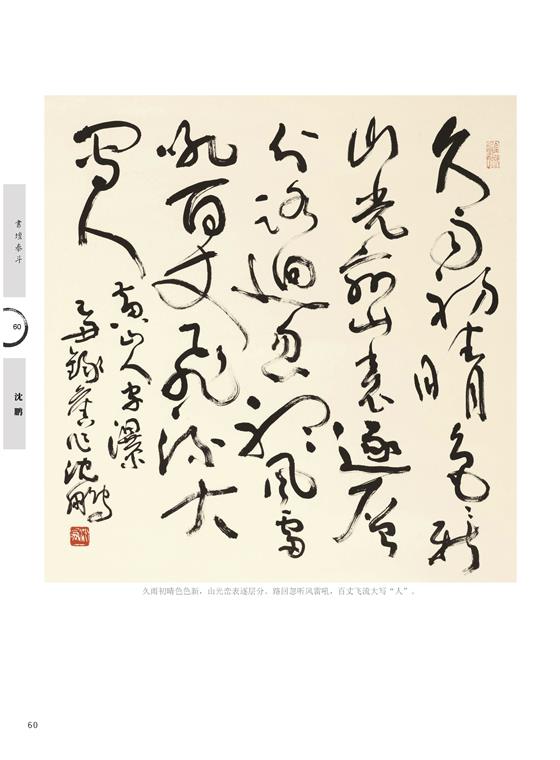 久雨初晴色〻新
山光峦表逐层
分路迴忽听風雷
吼百丈飛流大
写人
黄山人字瀑
錄舊作沈鵬
書壇泰斗
60
沈鹏
久雨初晴色色新，山光峦表逐层分。路回忽听风雷吼，百丈飞流大写“人”。
60